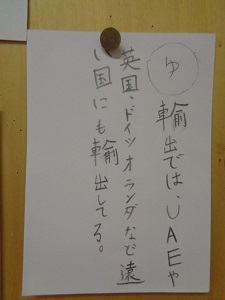 ゆ
輸出では、UAEや
英国・ドイツオランダなど遠
い国にも輸出してる。